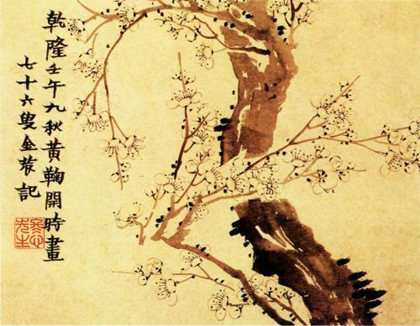 乾隆壬午九秋黄鞠開時畫
七十六叟金農記
冬心
先生